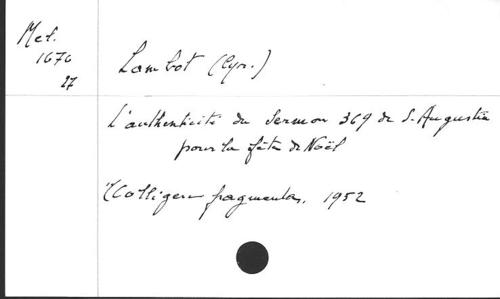 Mel.
1676
27
Lambot (Cyr.)
L'authenticité du Sermon 369 de S. Augustin
pour la fête de Noël
Colligere fragmenta. 1952